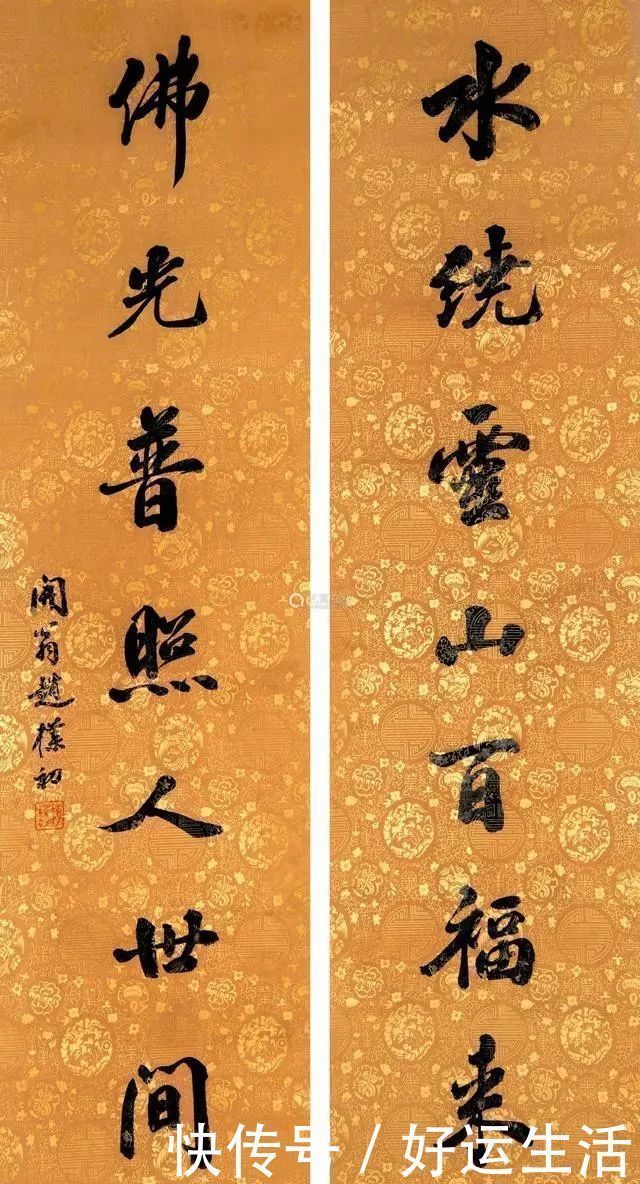 水绕靈山百福来
佛光普照人世間
開翁趙樸初
快传号 / 好运生活